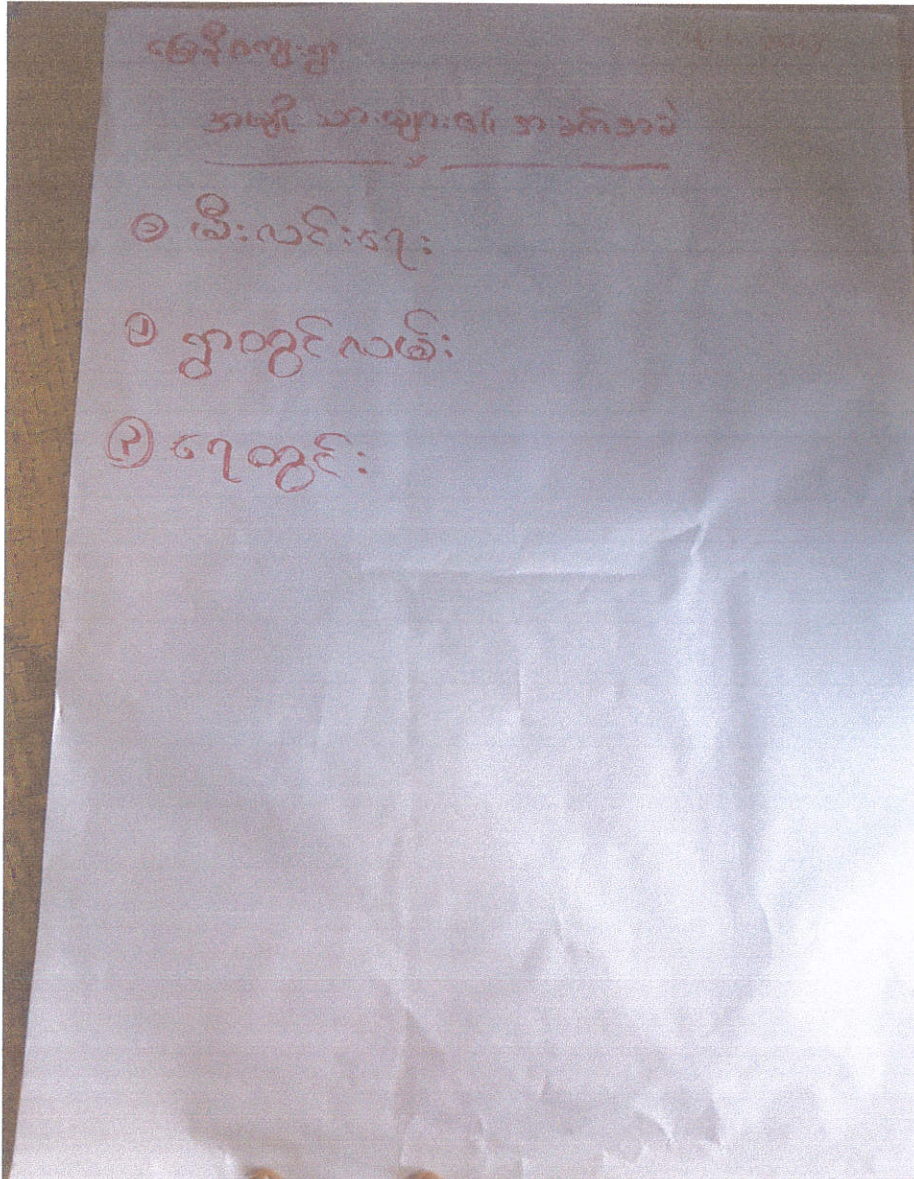 မြေနီကျေးရွာ
အမျိုးသားများ၏ အခက်အခဲ
၁ မီးလင်းရေး
၂ ရွာတွင်လမ်း
၃ ရေတွင်း